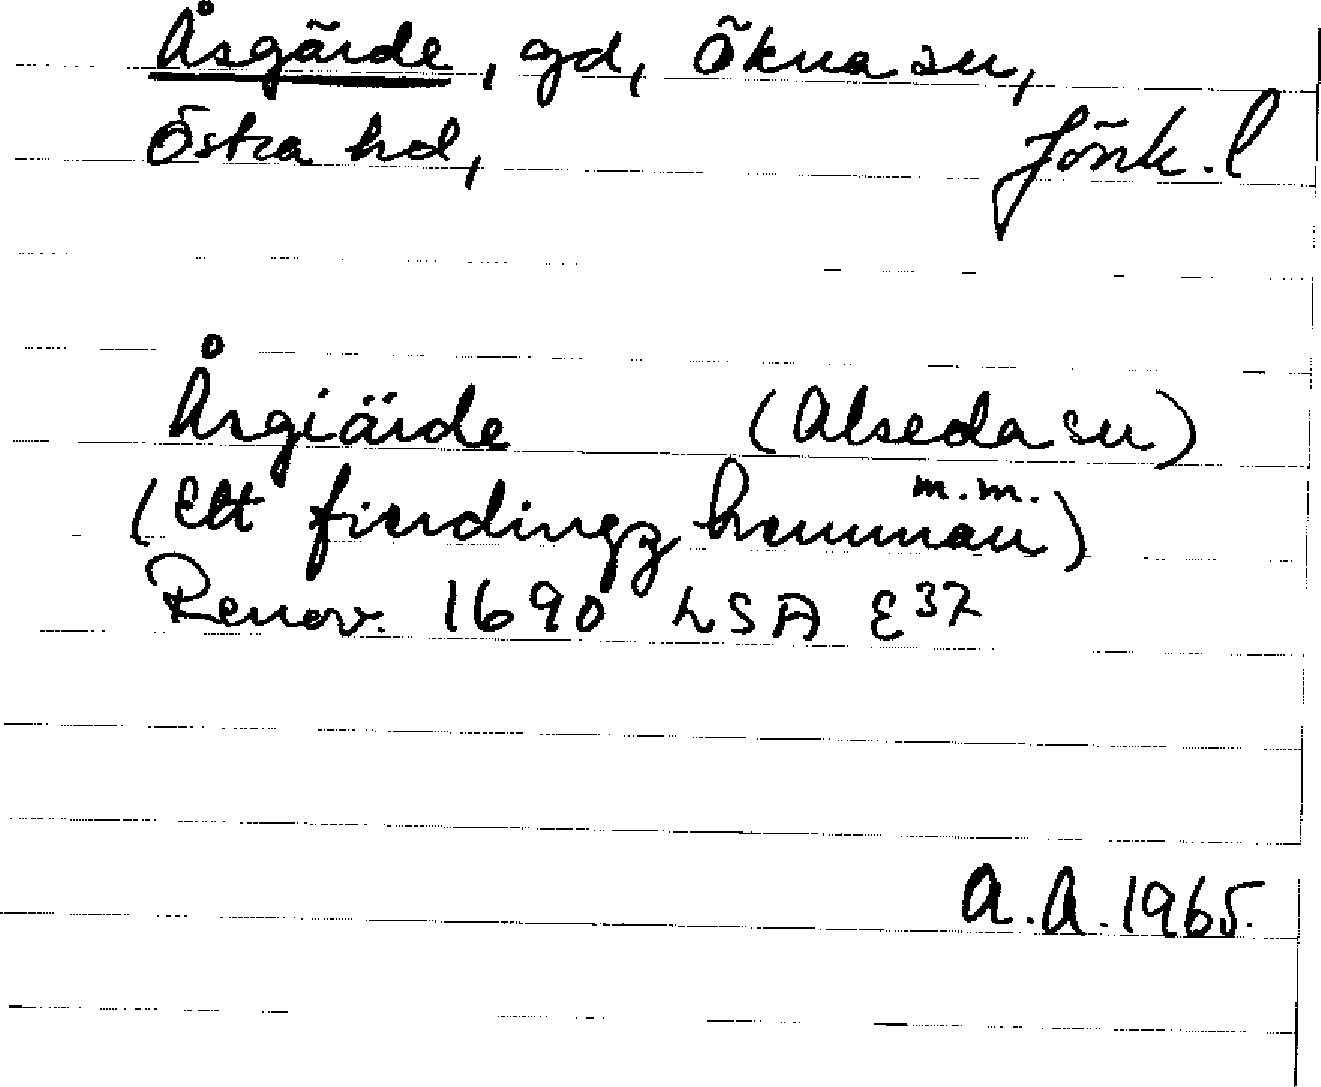 Åsgärde, gd, Ökna sn,
Östra hd, Jönk. l
Åsgiärde (Alseda sn)
(Ett fierdingz hemman m.m.)
Renov. 1690 LSA E37
A.A. 1965.